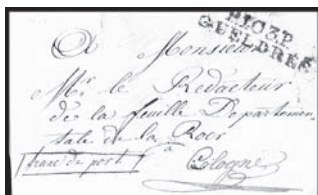 P.103.P.
GUELDRES
A Monsieur
Mr le Redacteur
de la feuille Departemen-
tale de la Roer
à
franc de port
Cologne